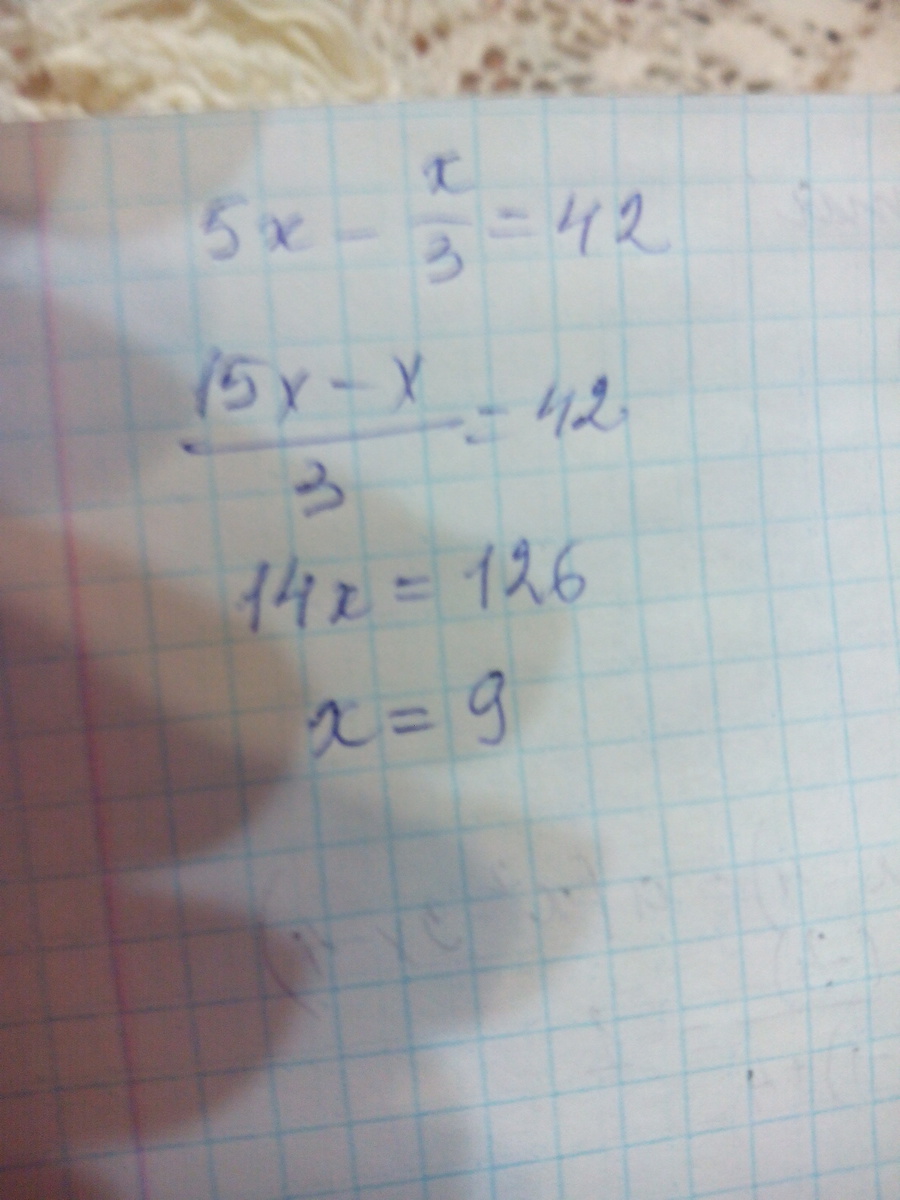 5x - x/3 = 42
(15x - x)/3 = 42
14x = 126
x = 9